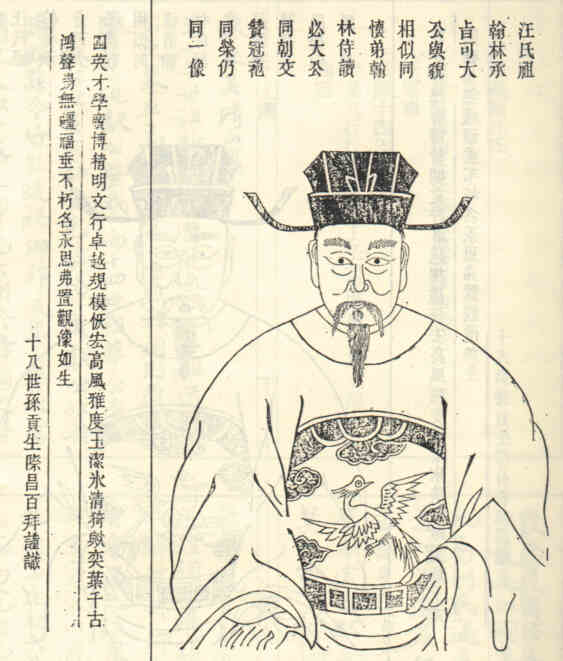 汪氏祖
翰林承
旨可大
公與貌
相似同
懷弟翰
林侍讀
必大公
同朝交
贊冠袍
同榮仍
同一像
英才學廣博精明文行卓越規模恢宏高風雅度玉潔氷清猗歟奕葉千古
鴻聲無疆福垂不朽名永思弗置觀像如生
十八世孫貢生際昌百拜謹識